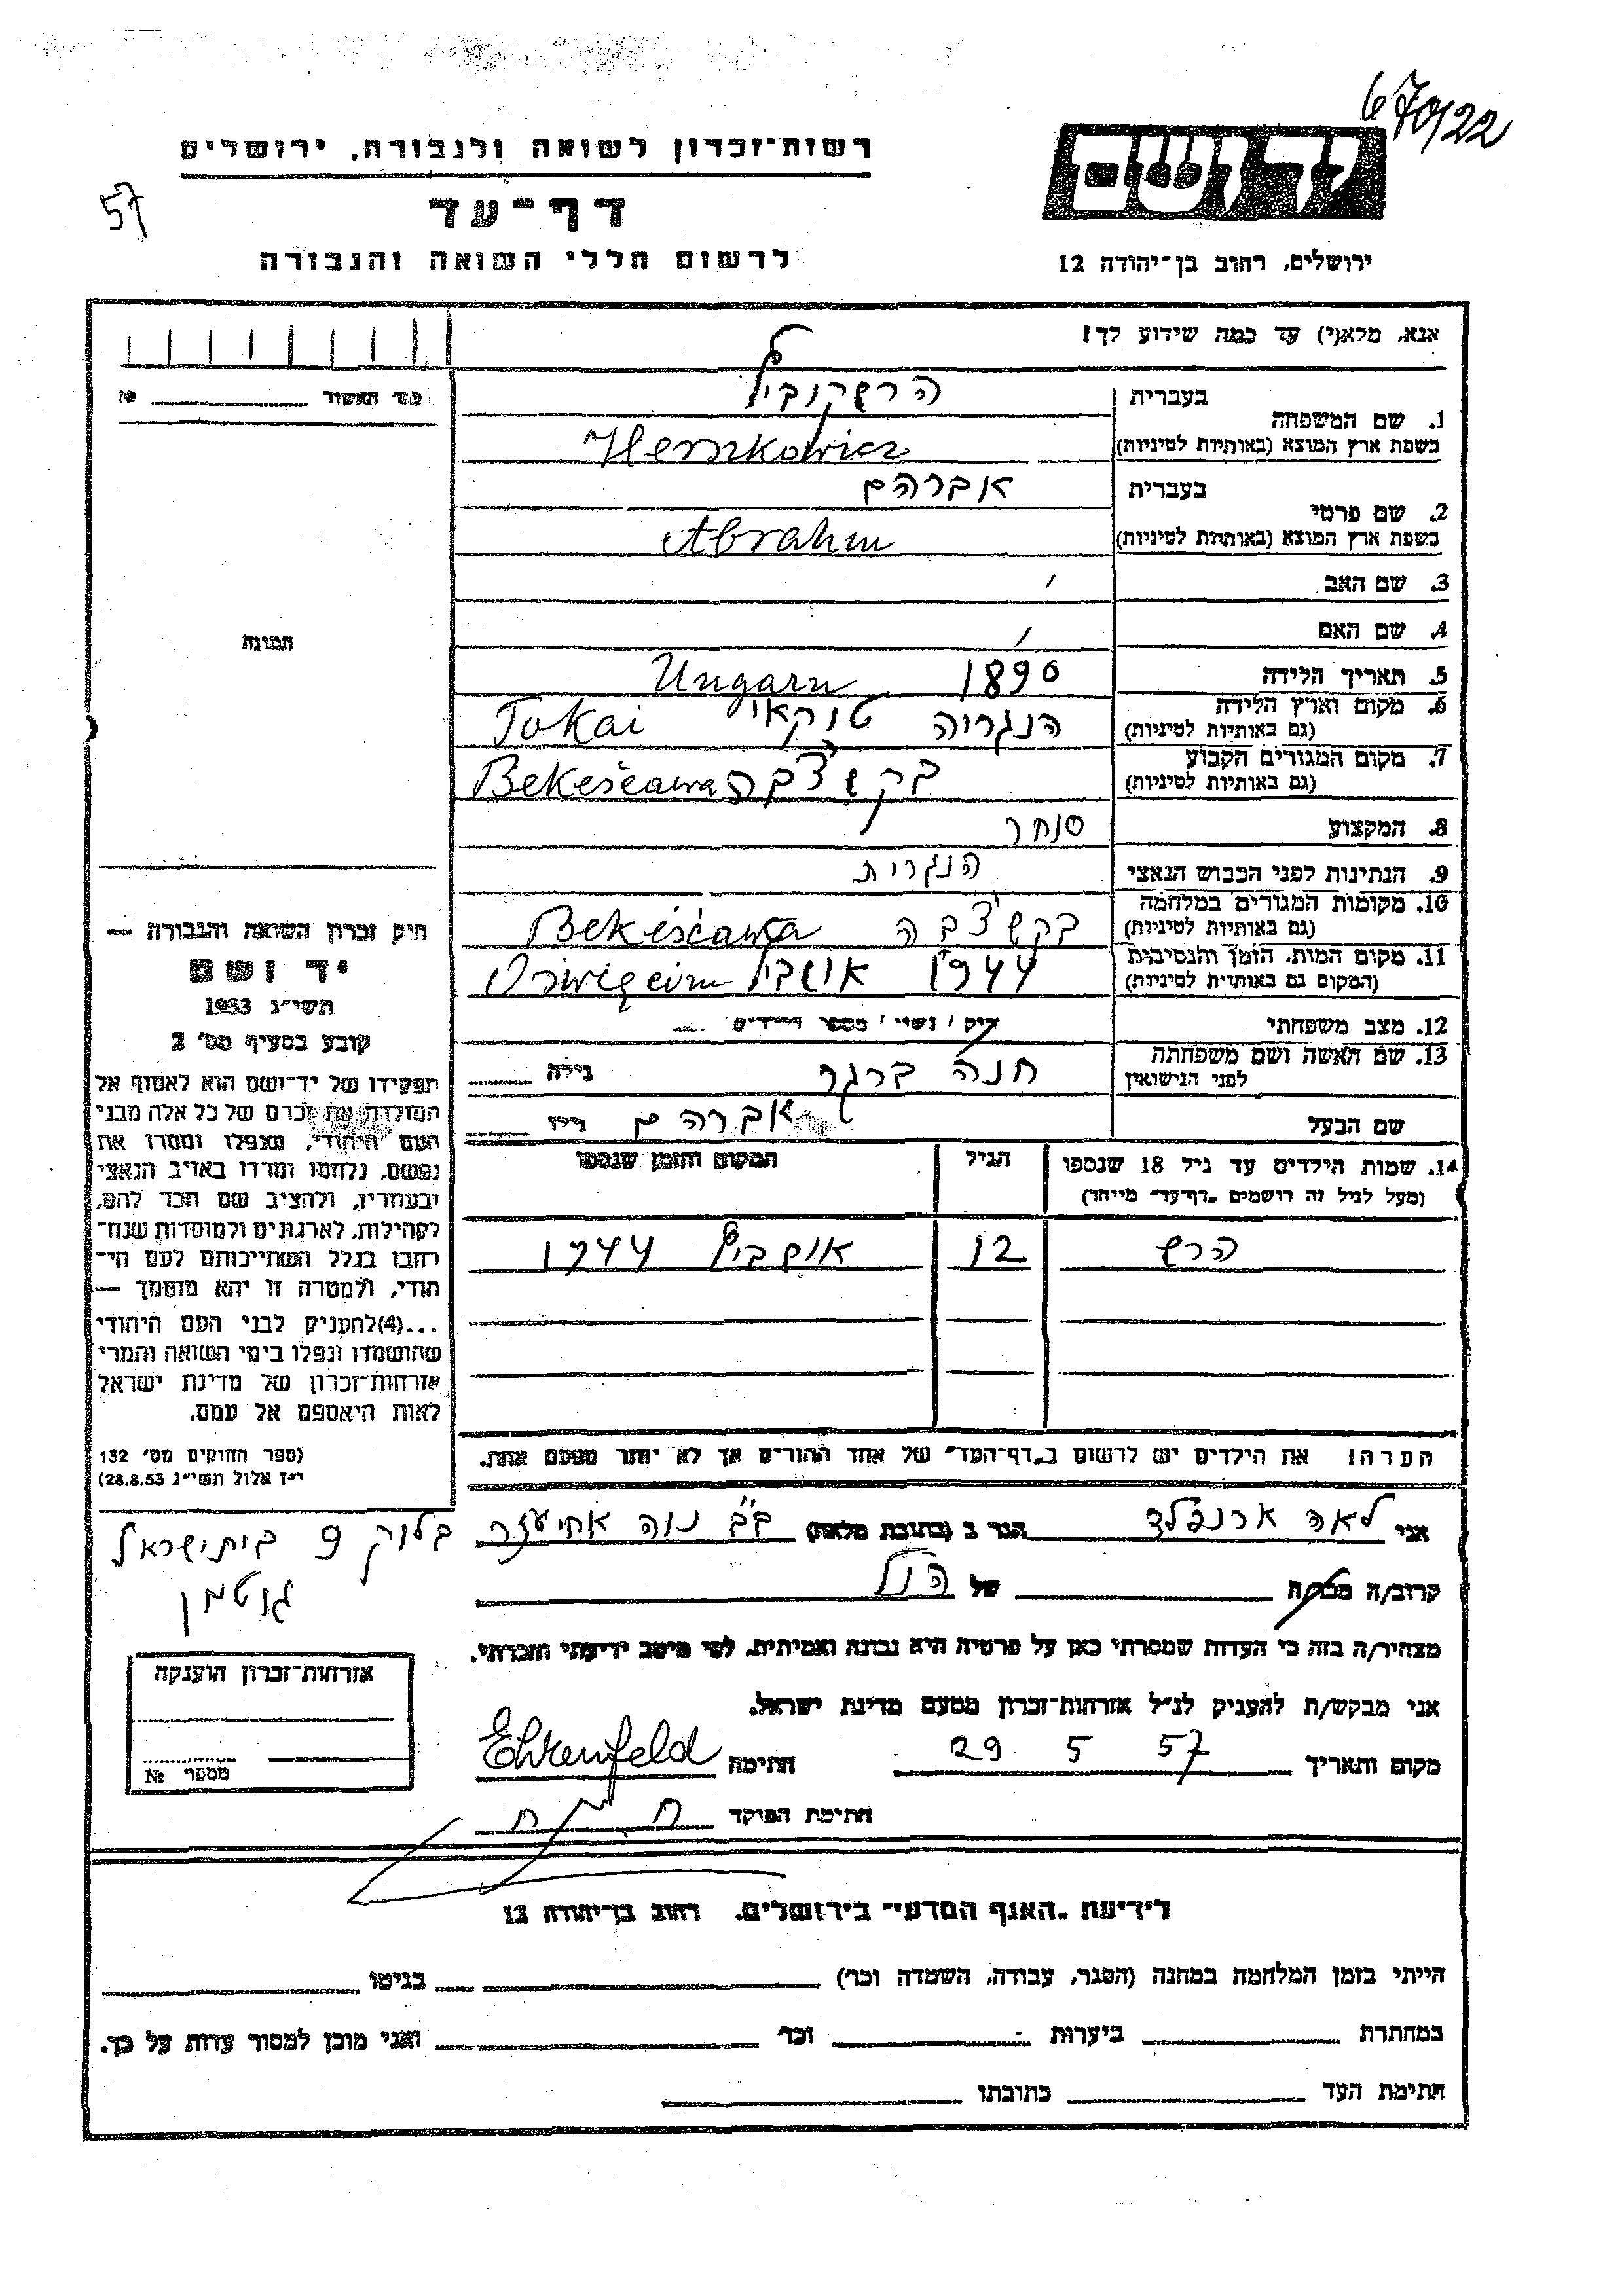 670/22
רשות־זכרון לשואה ולגבורה, ירושלים
ידושם
57
דף־עד
לרשום חללי השואה והגבורה
ירושלים, רחוב בן־יהודה 12
אנא, מלא(י) עד כמה שידוע לך!
מס׳ האשור № 
1. שם המשפחה
בעברית הרשקוביץ
בשפת ארץ המוצא (באותיות לטיניות) Herszkowicz
2. שם פרטי
בעברית אברהם
בשפת ארץ המוצא (באותיות לטיניות) Abrahm
3. שם האב
4. שם האם
תמונה
5. תאריך הלידה 1890 Ungarn
6. מקום וארץ הלידה הנגריה טוקאי Tokai
(גם באותיות לטיניות)
7. מקום המגורים הקבוע בקשצ'בה
(גם באותיות לטיניות)
8. המקצוע סוחר
9. הנתינות לפני הכבוש הנאצי הנגרית
10. מקומות המגורים במלחמה בקשצ'בה
(גם באותיות לטיניות)
11. מקום המות, הזמן והנסיבות 1944
(המקום גם באותיות לטיניות)
12. מצב משפחתי רוק / נשוי / מספר הילדים
13. שם האשה ושם משפחתה חנה ברגר גילה
לפני הנישואין
שם הבעל אברהם גילו
14. שמות הילדים עד גיל 18 שנספו הגיל המקום והזמן שנספו
(מעל לגיל זה רושמים "דף־עד" מיוחד)
הרש 12 אושביץ 1944
הערה! את הילדים יש לרשום ב"דף־העד" של אחד ההורים אך לא יותר מפעם אחת.
חיק זכרון השואה והגבורה —
יד ושם
תשי״ג 1953
קובע בסעיף מס׳ 2
תפקידו של יד־ושם הוא לאסוף אל
המולדת את זכרם של כל אלה מבני
העם היהודי, שנפלו ומסרו את
נפשם, נלחמו ומרדו באויב הנאצי
ובעוזריו, ולהציב שם וזכר להם,
לקהילות, לארגונים ולמוסדות שנח־
רבו בגלל השתייכותם לעם הי־
הודי, ולמטרה זו יהא מוסמך —
...(4)להעניק לבני העם היהודי
שהושמדו ונפלו בימי השואה והמרי
אזרחות־זכרון של מדינת ישראל
לאות היאספם אל עמם.
(ספר החוקים מס׳ 132
י״ז אלול תשי״ג 28.8.53)
אני לאה ארנפלד הגר ב (כתובת מלאה) ב"ב נוה אחיעזר בלוק 9 בית ישראל
גוטמן
קרוב/ה מכר/ה של הנ"ל
מצהיר/ה בזה כי העדות שמסרתי כאן על פרטיה היא נכונה ואמיתית, לפי מיטב ידיעתי והכרתי.
אני מבקש/ת להעניק לנ״ל אזרחות־זכרון מטעם מדינת ישראל.
מקום ותאריך 29 5 57 חתימה Ehrenfeld
חתימת הפוקד
אזרחות־זכרון הוענקה
מספר №
לידיעת "האגף המדעי" בירושלים, רחוב בן־יהודה 12
הייתי בזמן המלחמה במחנה (הסגר, עבודה, השמדה וכו׳) בגיטו
במחתרת ביערות וכו׳ ואני מוכן למסור עדות על כך.
חתימת העד כתובתו